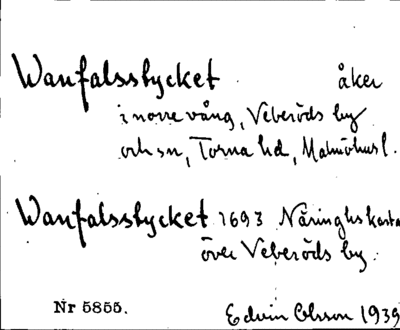 Wanfalsstycket åker
i norre vång, Veberöds by
och sn, Torna hd, Malmöhus l.
Wanfalsstycket 1693 Näringhskarta
över Veberöds by.
Nr 5855.
Edwin Ohlsson 1935